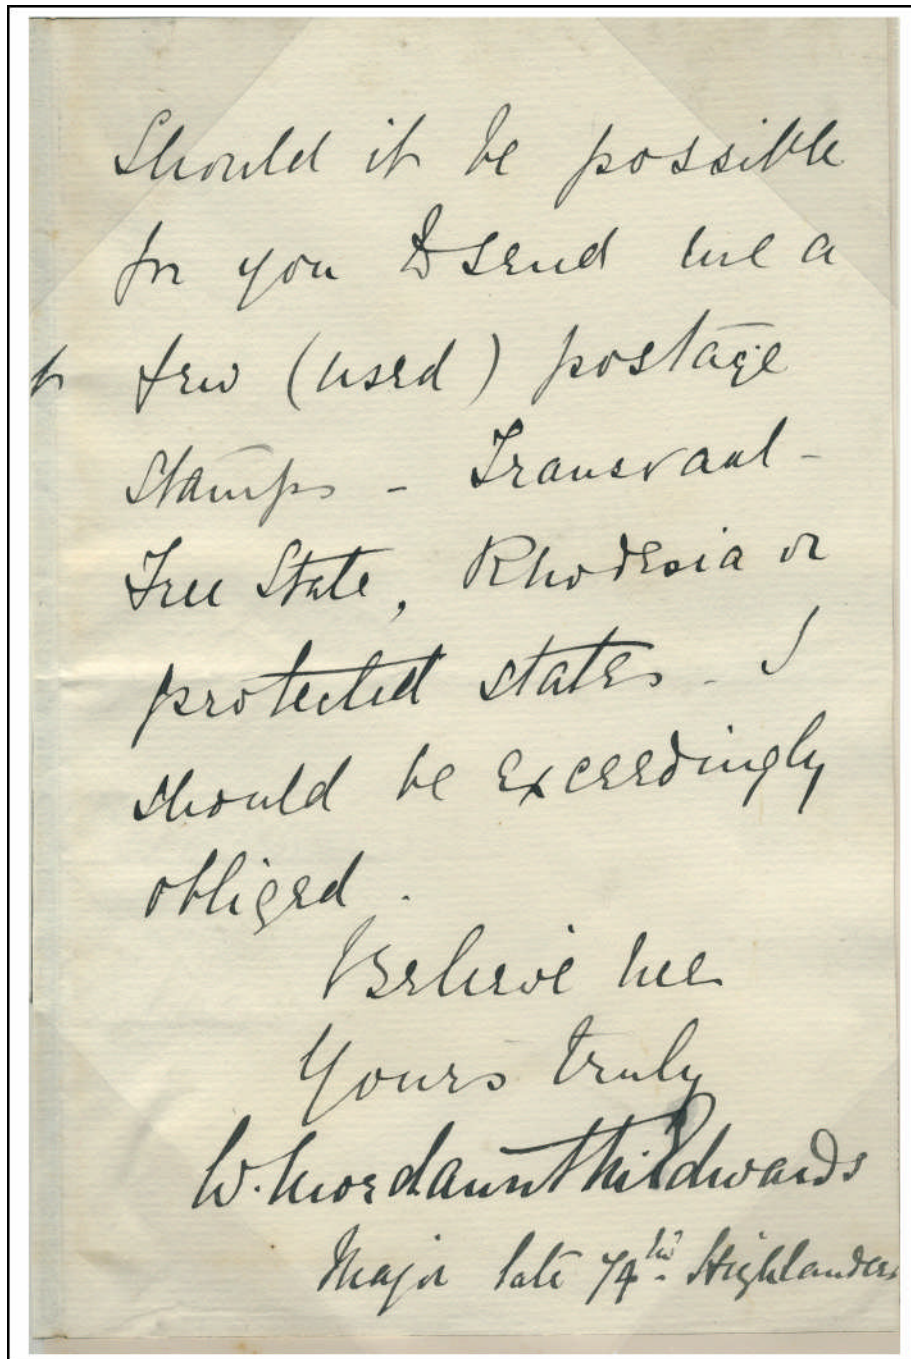 Should it be possible
for you to send me a
few (used) postage
stamps - Transvaal -
Free State, Rhodesia or
protected states - I
should be exceedingly
obliged.
Believe me
Yours truly
W. Mordaunt Edwards
Major late 74th Highlanders